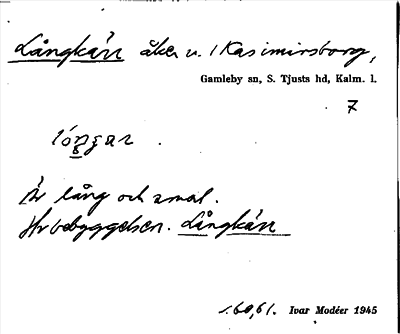 Långkärr åker u. Kasimirsborg,
Gamleby sn, S. Tjusts hd, Kalm. l.
7
Är lång och smal.
Jfr bebyggelsen. Långkärr
s. 60,61. Ivar Modéer 1945